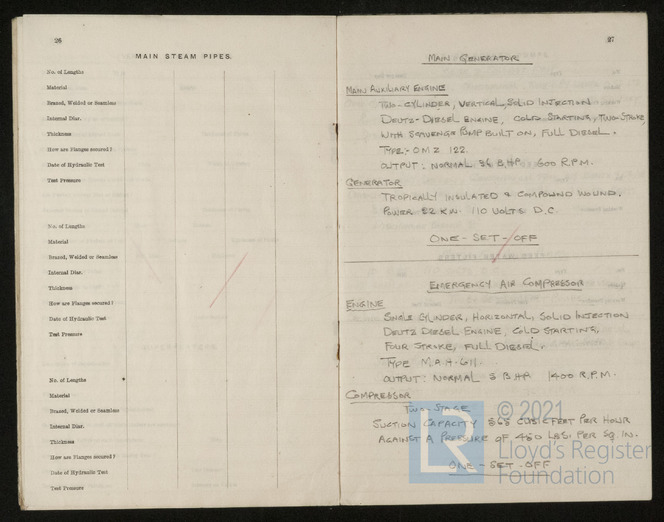 26
MAIN STEAM PIPES.
No. of Lengths
Material
Brazed, Welded or Seamless
Internal Diar.
Thickness
How are Flanges secured?
Date of Hydraulic Test
Test Pressure
No. of Lengths
Material
Brazed, Welded or Seamless
Internal Diar.
Thickness
How are Flanges secured?
Date of Hydraulic Test
Test Pressure
No. of Lengths
Material
Brazed, Welded or Seamless
Internal Diar.
Thickness
How are Flanges secured?
Date of Hydraulic Test
Test Pressure
27
MAIN GENERATOR
MAIN AUXILIARY ENGINE
TWO-CYLINDER, VERTICAL, SOLID INJECTION
DEUTZ-DIESEL ENGINE, COLD STARTING, TWO-STROKE
WITH SCAVENGE PUMP BUILT ON, FULL DIESEL.
TYPE:- OMZ 122.
OUTPUT: NORMAL 36 B.H.P. 600 R.P.M.
GENERATOR
TROPICALLY INSULATED & COMPOUND WOUND.
POWER 22 KW. 110 VOLTS D.C.
ONE-SET-OFF
EMERGENCY AIR COMPRESSOR
ENGINE
SINGLE CYLINDER, HORIZONTAL, SOLID INJECTION
DEUTZ DIESEL ENGINE, COLD STARTING,
FOUR STROKE, FULL DIESEL.
TYPE M.A.H.
OUTPUT: NORMAL B.H.P. 1400 R.P.M.
COMPRESSOR
TWO-STAGE
SUCTION CAPACITY 565 CUBIC FEET PER HOUR
AGAINST A PRESSURE OF LBS. PER SQ. IN.
ONE-SET-OFF
© 2021
LR
Lloyd's Register
Foundation